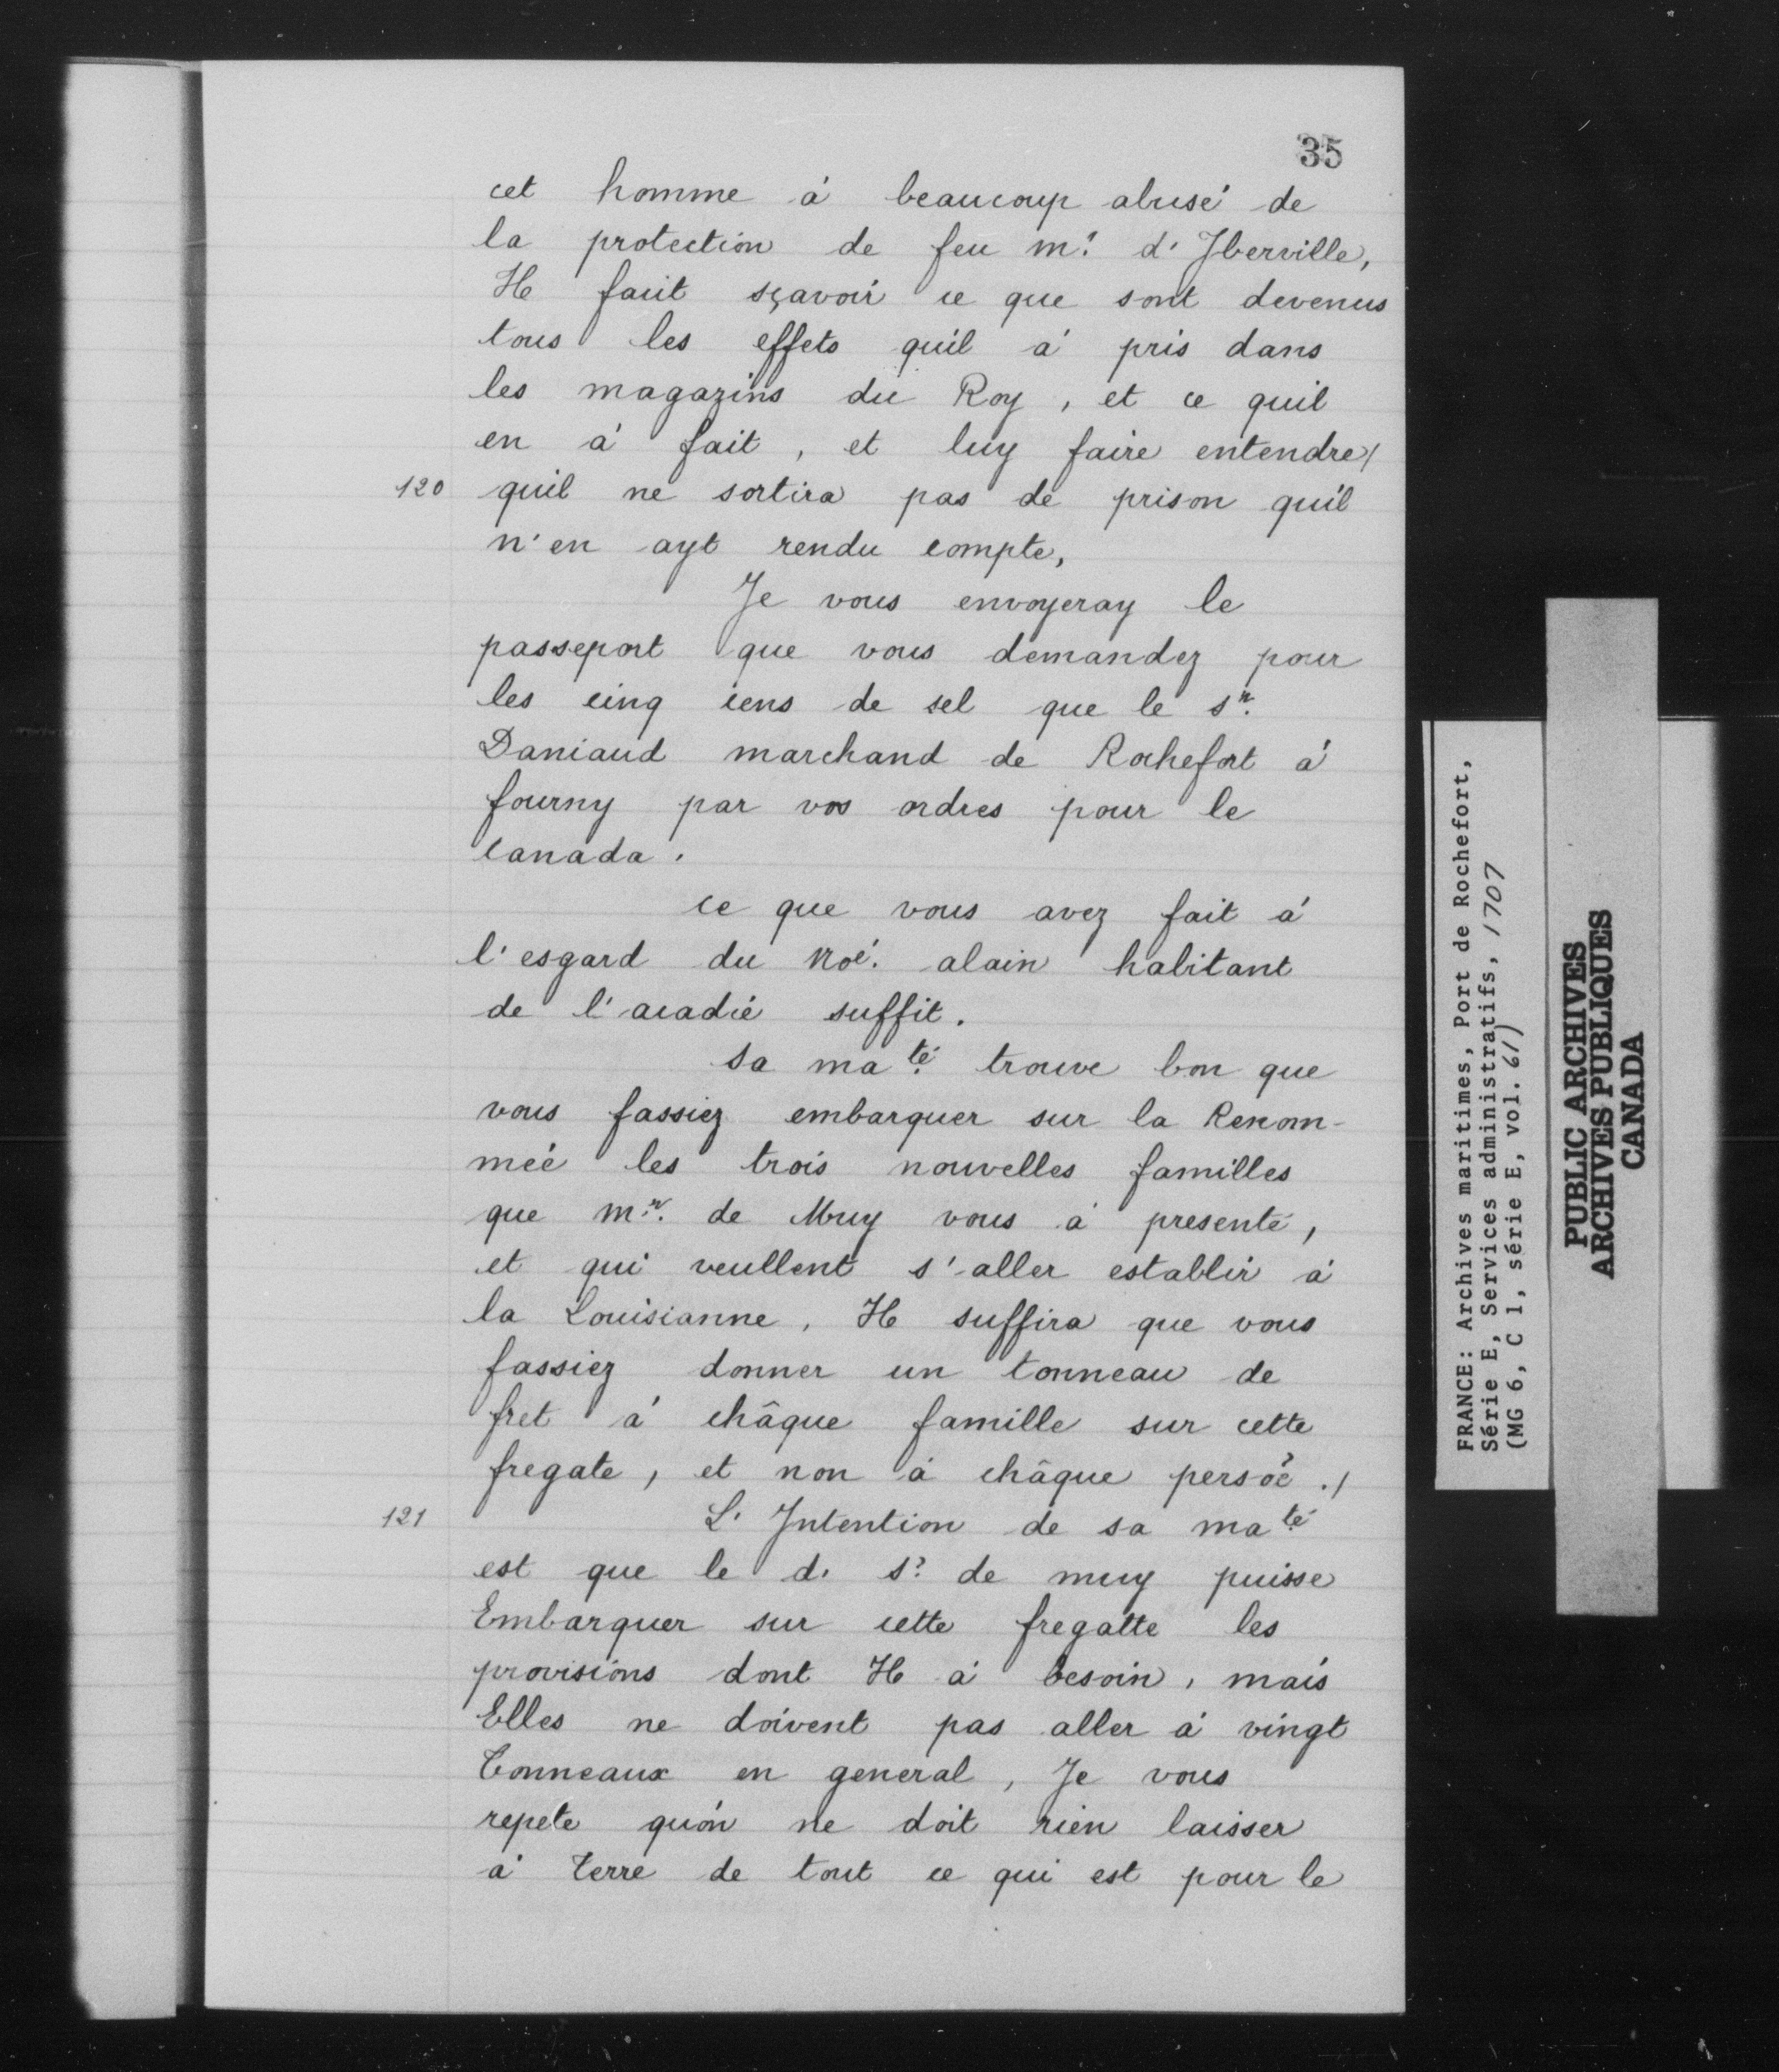 35
cet homme à beaucoup abusé de
la protection de feu mr. d'Iberville,
Il faut sçavoir ce que sont devenus
tous les effets quil à pris dans
les magazins du Roy, et ce quil
en à fait, et luy faire entendre/
120 quil ne sortira pas de prison qu'il
n'en ayt rendu compte,
Je vous envoyeray le
passeport que vous demandez pour
les cinq cens de sel que le sr.
Daniaud marchand de Rochefort à
fourny par vos ordres pour le
Canada.
Ce que vous avez fait à
l'esgard du Noé. alain habitant
de l'acadie suffit.
Sa maté trouve bon que
vous fassiez embarquer sur la Renom-
mée les trois nouvelles familles
que mr. de Muy vous à presenté,
et qui veullent s'aller establir à
la Louisianne, Il suffira que vous
fassiez donner un tonneau de
fret à châque famille sur cette
fregate, et non à châque persõe./
121 L'Intention de sa maté
est que le d. sr. de muy puisse
Embarquer sur cette fregatte les
provisions dont Il à besoin, mais
Elles ne doivent pas aller à vingt
Tonneaux en general, Je vous
repete qu'on ne doit rien laisser
à Terre de tout ce qui est pour le
FRANCE: Archives maritimes, Port de Rochefort,
Série E, Services administratifs, 1707
(MG 6, C 1, série E, vol. 61)
PUBLIC ARCHIVES
ARCHIVES PUBLIQUES
CANADA